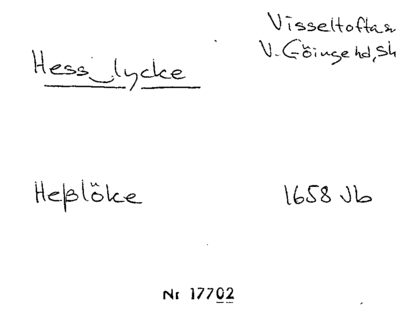 Visseltofta sn
V. Göinge hd, Sk
Hess_lycke
Heßlöke 1658 Jb
Nr 17702